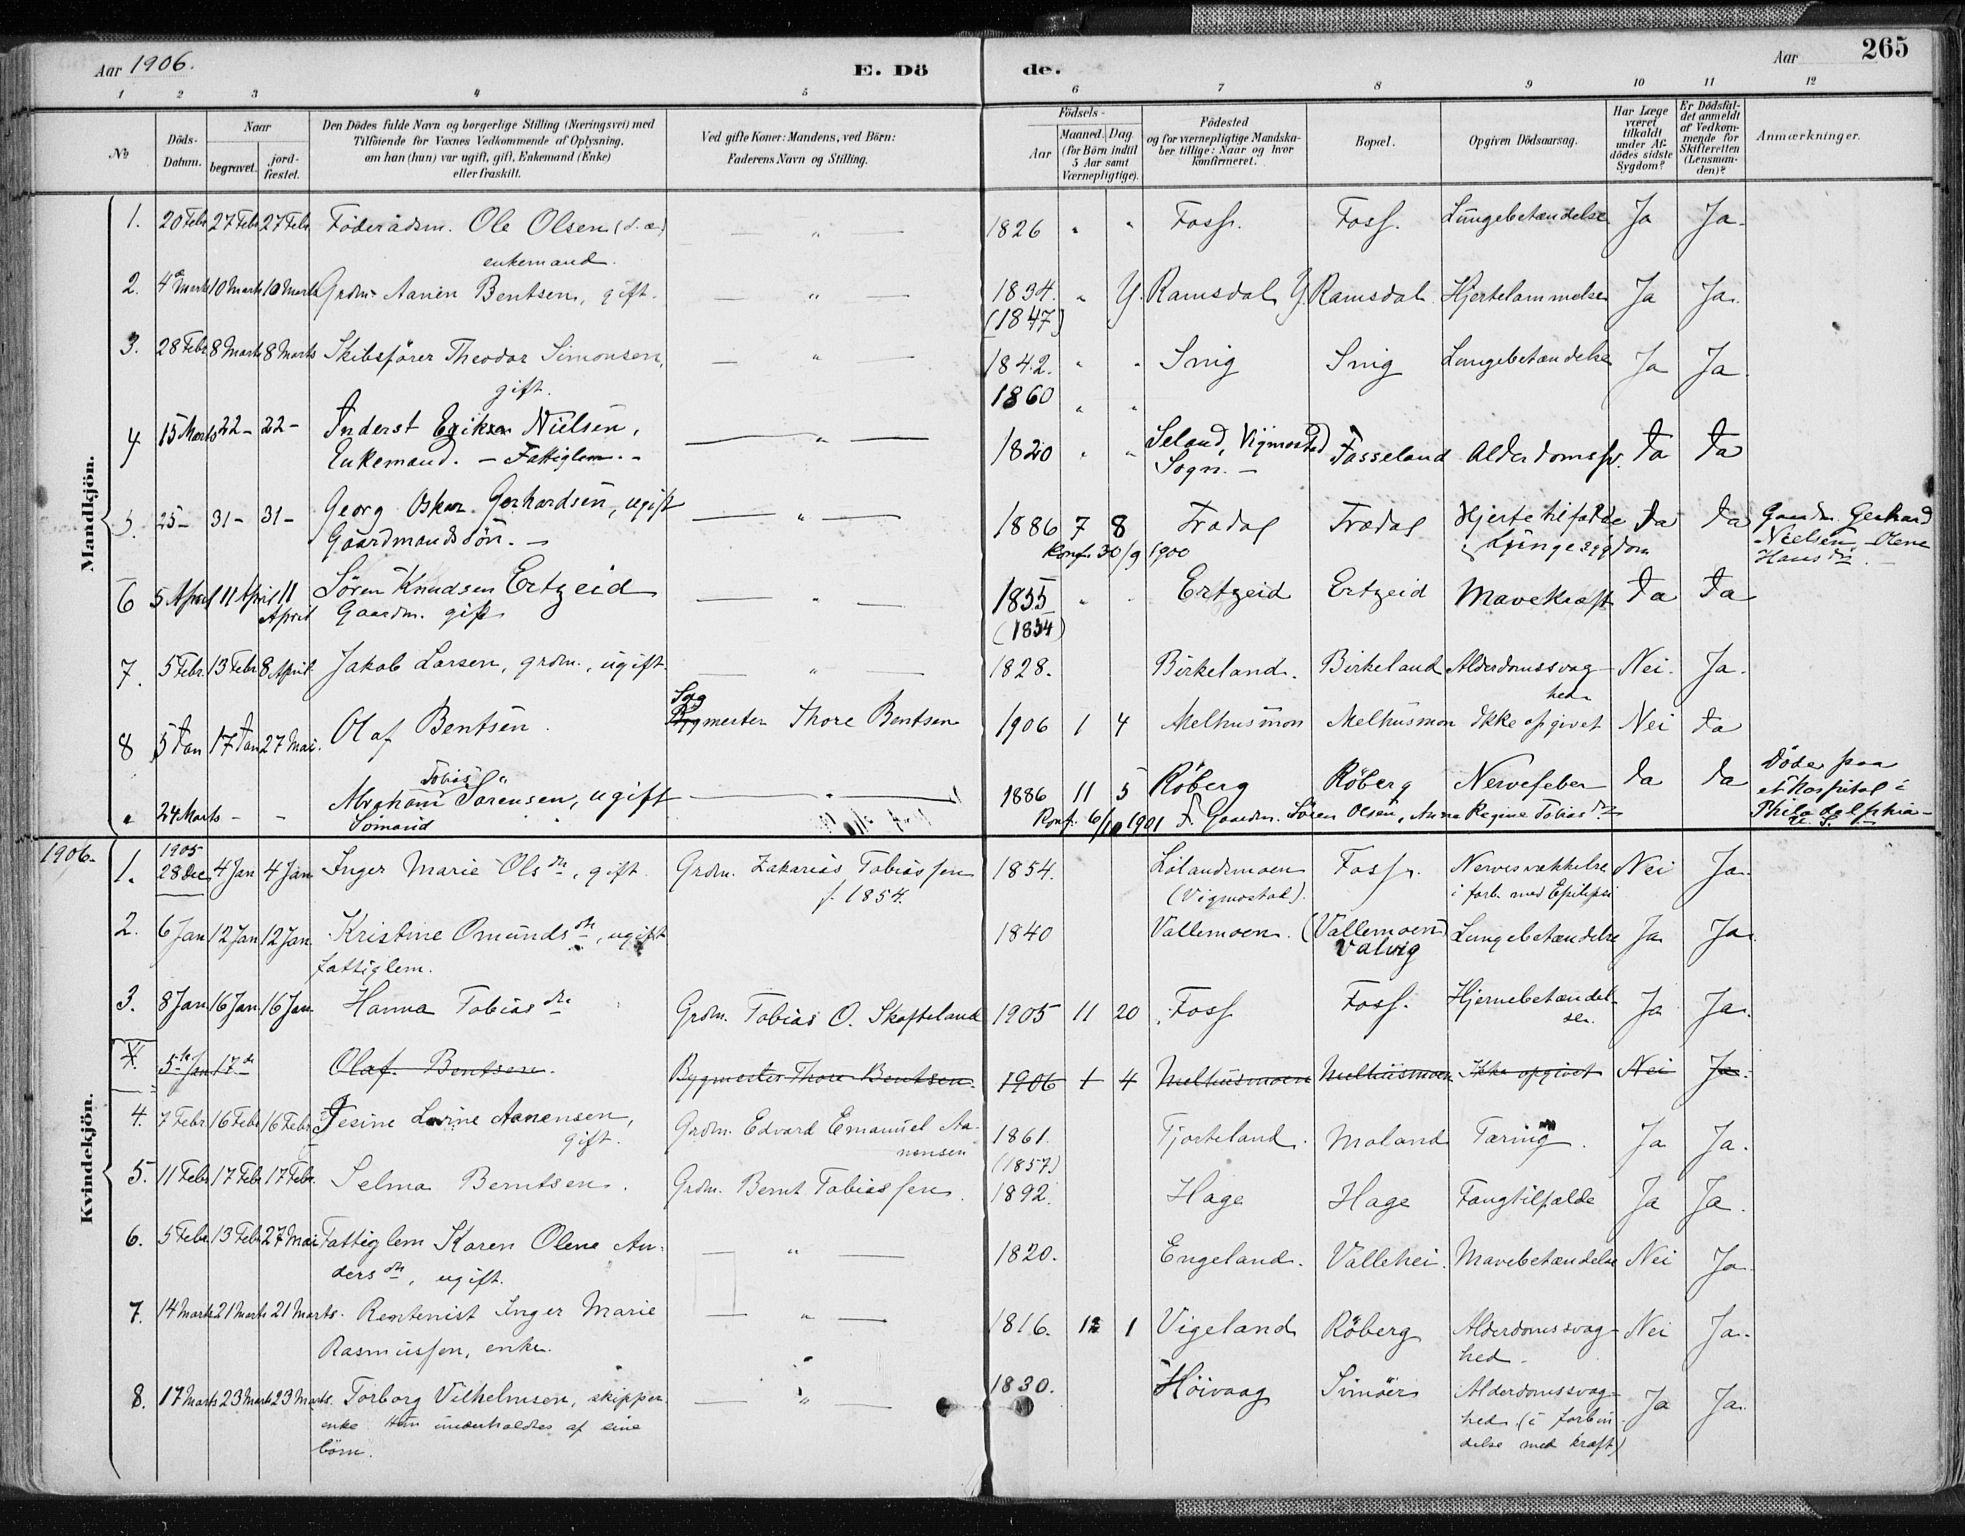 Aar 1906.
E. Dö
de.
Aar
265
1 2 3 4 5 6 7 8 9 10 11 12
No
Döds-
Datum.
Naar
begravet.
jord-
fæstet.
Den Dödes fulde Navn og borgerlige Stilling (Næringsvei) med
Tilföiende for Voxnes Vedkommende af Oplysning,
om han (hun) var ugift, gift, Enkemand (Enke)
eller fraskilt.
Ved gifte Koner: Mandens, ved Börn:
Faderens Navn og Stilling.
Födsels-
Aar
Maaned. Dag.
(for Börn indtil
5 Aar samt
Værnepligtige).
Födested
og for værnepligtige Mandska-
ber tillige: Naar og hvor
konfirmeret.
Bopæl.
Opgiven Dödsaarsag.
Har Læge
været
tilkaldt
under Af-
dödes sidste
Sygdom?
Er Dödsfal-
det anmeldt
af Vedkom-
mende for
Skifteretten
(Lensman-
den)?
Anmærkninger.
Mandkjön.
1. 20 Febr 27 Febr 27 Febr. Föderådsm. Ole Olsen (d. æ) — " — 1826 " " Foss. Foss. Lungebetændelse Ja Ja.
enkemand.
2. 4de Marts 10 Marts 10 Marts Grdm. Aanen Bentsen, gift. — " — 1834. " Y. Ramsdal Y. Ramsdal. Hjertelammelse Ja Ja.
(1847)
3. 28 Febr 8 Marts 8 Marts Skibsfører Theodor Simonsen, — " — 1842. " " Snig Snig Lungebetændelse Ja Ja.
gift. 1860 " "
4 15 Marts 22 – 22 – Inderst Eriksen Nielsen, — " — 1820 " " Seland, Vigmostad Fasseland Alderdomssv. Ja Ja
Enkemand. – Fattiglem. – Sogn. –
5. 25 – 31 – 31 – Georg Oskar Gerhardsen, ugift — " — 1886 7 8 Trædal Trædal Hjertetilfælde Ja Ja Gaardm. Gerhard
Gaardmandssön. – Konf. 30/9 1900 & Lungesygdom Nielsen, Olene
Hansdtr. –
6 5 April 11 April 11 April Sören Knudsen Ertzeid — " — 1855 " " Ertzeid Ertzeid Mavekræft Ja Ja
Gaardm. gift (1854)
7. 5 Febr. 13 Febr 8 April Jakob Larsen, grdm., ugift — " — 1828. Birkeland. Birkeland Alderdomssvag- Nei. Ja.
hed
8 5 Jan 17 Jan 27 Mai. Olaf Bentsen. Bygmester Thore Bentsen 1906 1 4 Melhusmon Melhusmon Ikke opgivet Nei Ja
24 Marts – – Abraham Tobias Sörensen, ugift — " — 1886 11 5 Röberg Röberg Nervefeber Ja Ja Döde paa
Sömand Konf. 6/10 1901 F. Gaardm. Sören Olsen, Anna Regine Tobiasdtr et Hospital i
Philadelphia –
U. S. –
Kvindekjön.
1906.
1. 1905 28 Dec 4 Jan 4 Jan Inger Marie Olsdtr, gift. Grdm. Zakarias Tobiassen 1854. Lölandsmoen Foss. Nervesvækkelse Nei Ja.
f. 1854. (Vigmostad). i forb. med Epilepsi
2. 6 Jan 12 Jan 12 Jan. Kristine Omundsdtr, ugift 1840 Vallemoen. (Vallemoen) Lungebetændelse Ja Ja.
fattiglem. Valvig
3. 8 Jan 16 Jan 16 Jan. Hanna Tobiasdtr Grdm. Tobias O. Skofteland 1905 11 20 Foss Foss. Hjernebetændel- Ja Ja.
se.
4. 5te Jan 17de Olaf Bentsen. Bygmester Thore Bentsen. 1906 1 4 Melhusmoen Melhusmoen Ikke opgivet Nei Ja.
4. 7 Febr. 16 Febr 16 Febr. Jesine Lovine Aanensen, Grdm. Edvard Emanuel Aa- 1861. Tjorteland. Moland Tæring. Ja Ja.
gift. nensen (1857)
5. 11 Febr 17 Febr 17 Febr. Selma Berntsen. Grdm. Bernt Tobiassen. 1892. Hage Hage Fangtilfælde Ja Ja.
6. 5 Febr. 13 Febr 27 Mai Fattiglem Karen Olene An- — " — 1820. Engeland. Vallehei. Mavebetændelse Nei Ja.
dersdtr, ugift.
7. 14 Marts 21 Marts 21 Marts. Rentenist Inger Marie — " — 1816. 12 1 Vigeland Röberg Alderdomssvag- Nei Ja.
Rasmussen, enke. hed.
8. 17 Marts 23 Marts 23 Marts. Torborg Vilhelmsen, skipper- — " — 1830. Höivaag Svinöer Alderdomssvag- Ja Ja.
enke. Hun underholdtes af sine hed (i forbin-
börn. delse med kræft)